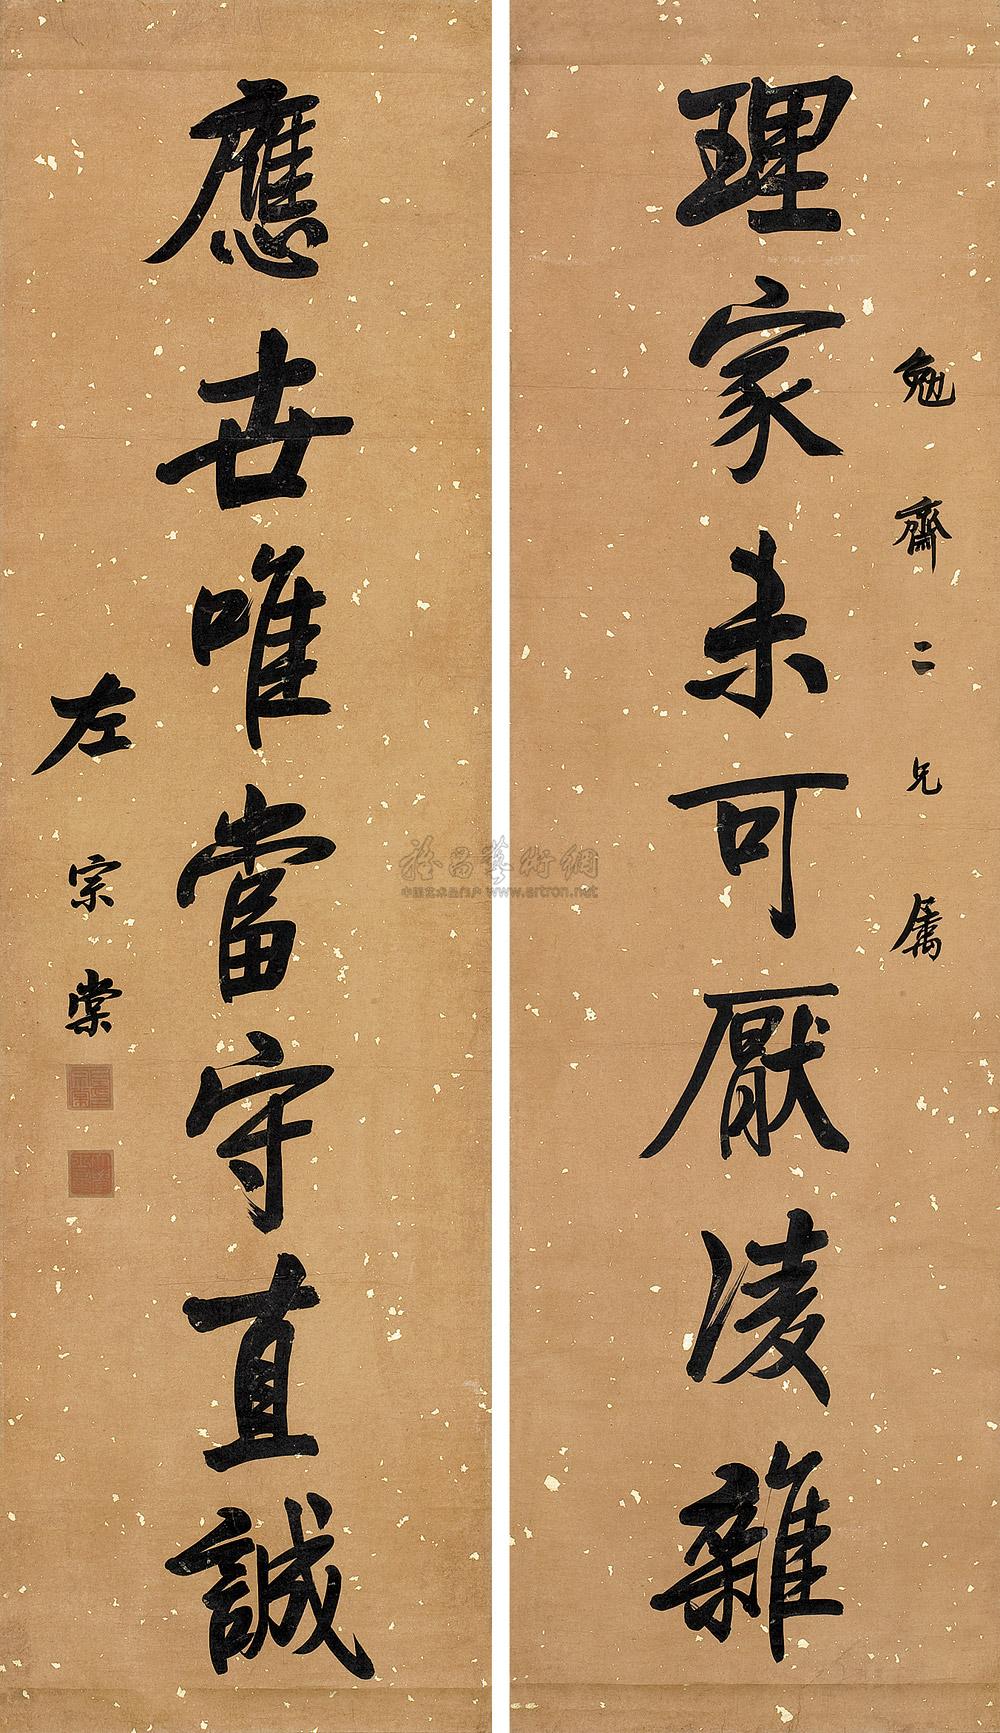 勉齋二兄屬
理家未可厭淩雜
應世唯當守直誠
左宗棠
雅昌藝術網
中国艺术品门户 www.artron.net